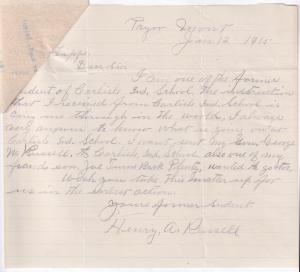 Pryor Mont
Jan 12 1915
Dear Sir
I am one of the former
student of Carlisle Ind. School. The instruction
that I received from Carlisle Ind. School is
carry me through in the world. I always
early answer to know what is going on at
Carlisle Ind. School. I want sent my Son George
W. Russell, to Carlisle, Ind. School also one of my
friends son Joe
wanted to go too.
Wish you take this matter up for
us in the action
Yours former student
Henry. A. Russell